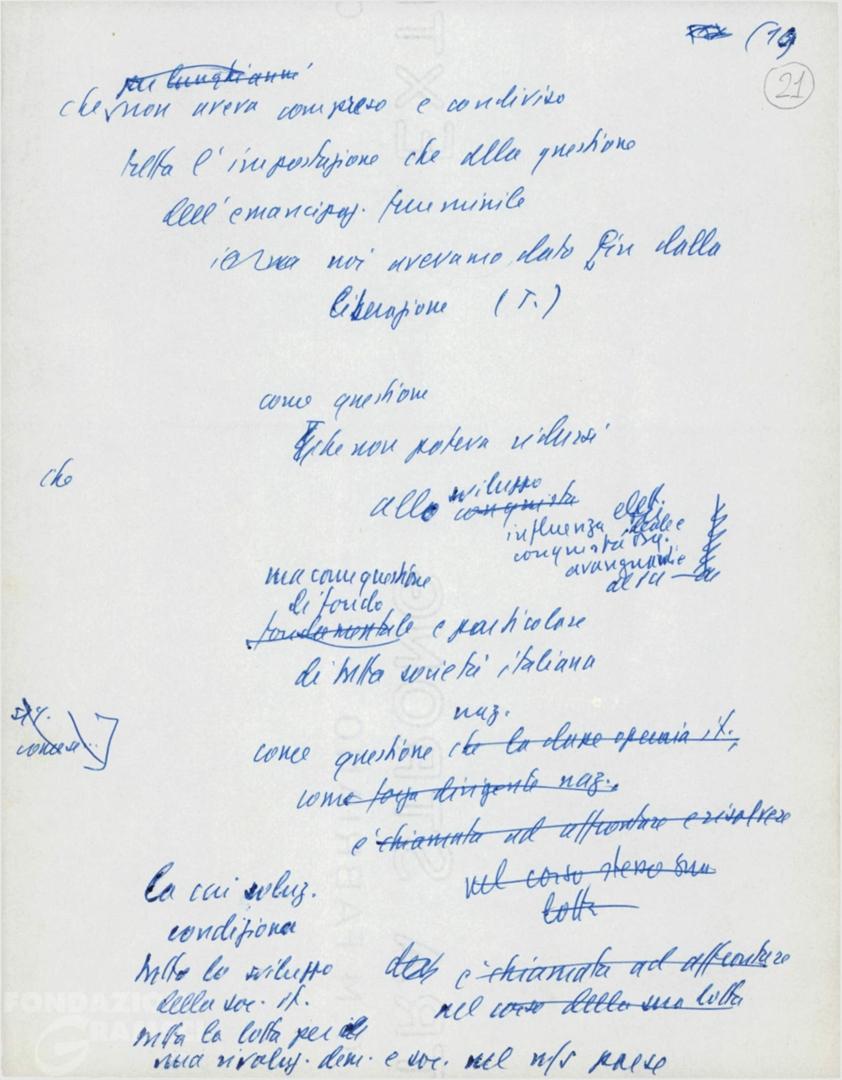 (19
21
per lunghi anni
che non aveva compreso e condiviso
tutta l'impostazione che alla questione
dell'emancipaz. femminile
noi avevamo dato fin dalla
Liberazione (T.)
come questione
che non poteva ridursi
che
allo sviluppo
conquista
influenza elett.
conquista
avanguardie
ma come questione
di fondo
fondamentale e particolare
di tutta società italiana
naz.
come questione che la classe operaia it.,
come forza dirigente naz.,
è chiamata ad affrontare e risolvere
nel corso stesso sua
lotta
la cui soluz.
condiziona
tutto lo sviluppo
della soc. it.
è chiamata ad affrontare
nel corso della sua lotta
tutta la lotta per
una rivoluz. dem. e soc. nel n/s paese
FONDAZIONE
GRAMSCI